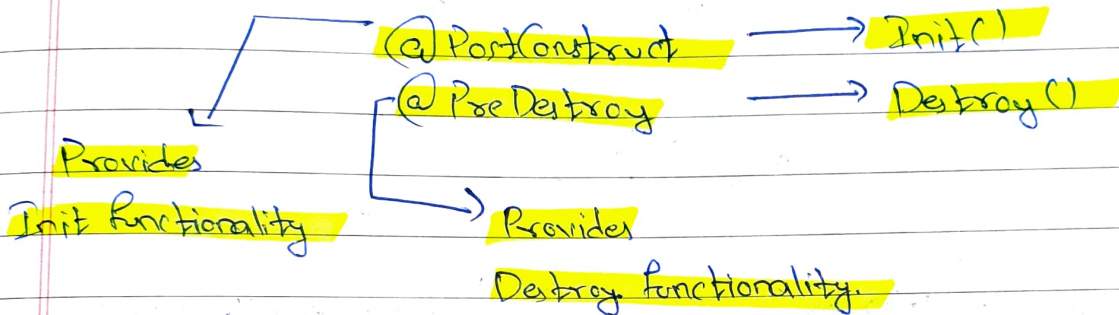 @PostConstruct → Init()
@PreDestroy → Destroy()
Provides
Init functionality
Provides
Destroy functionality.